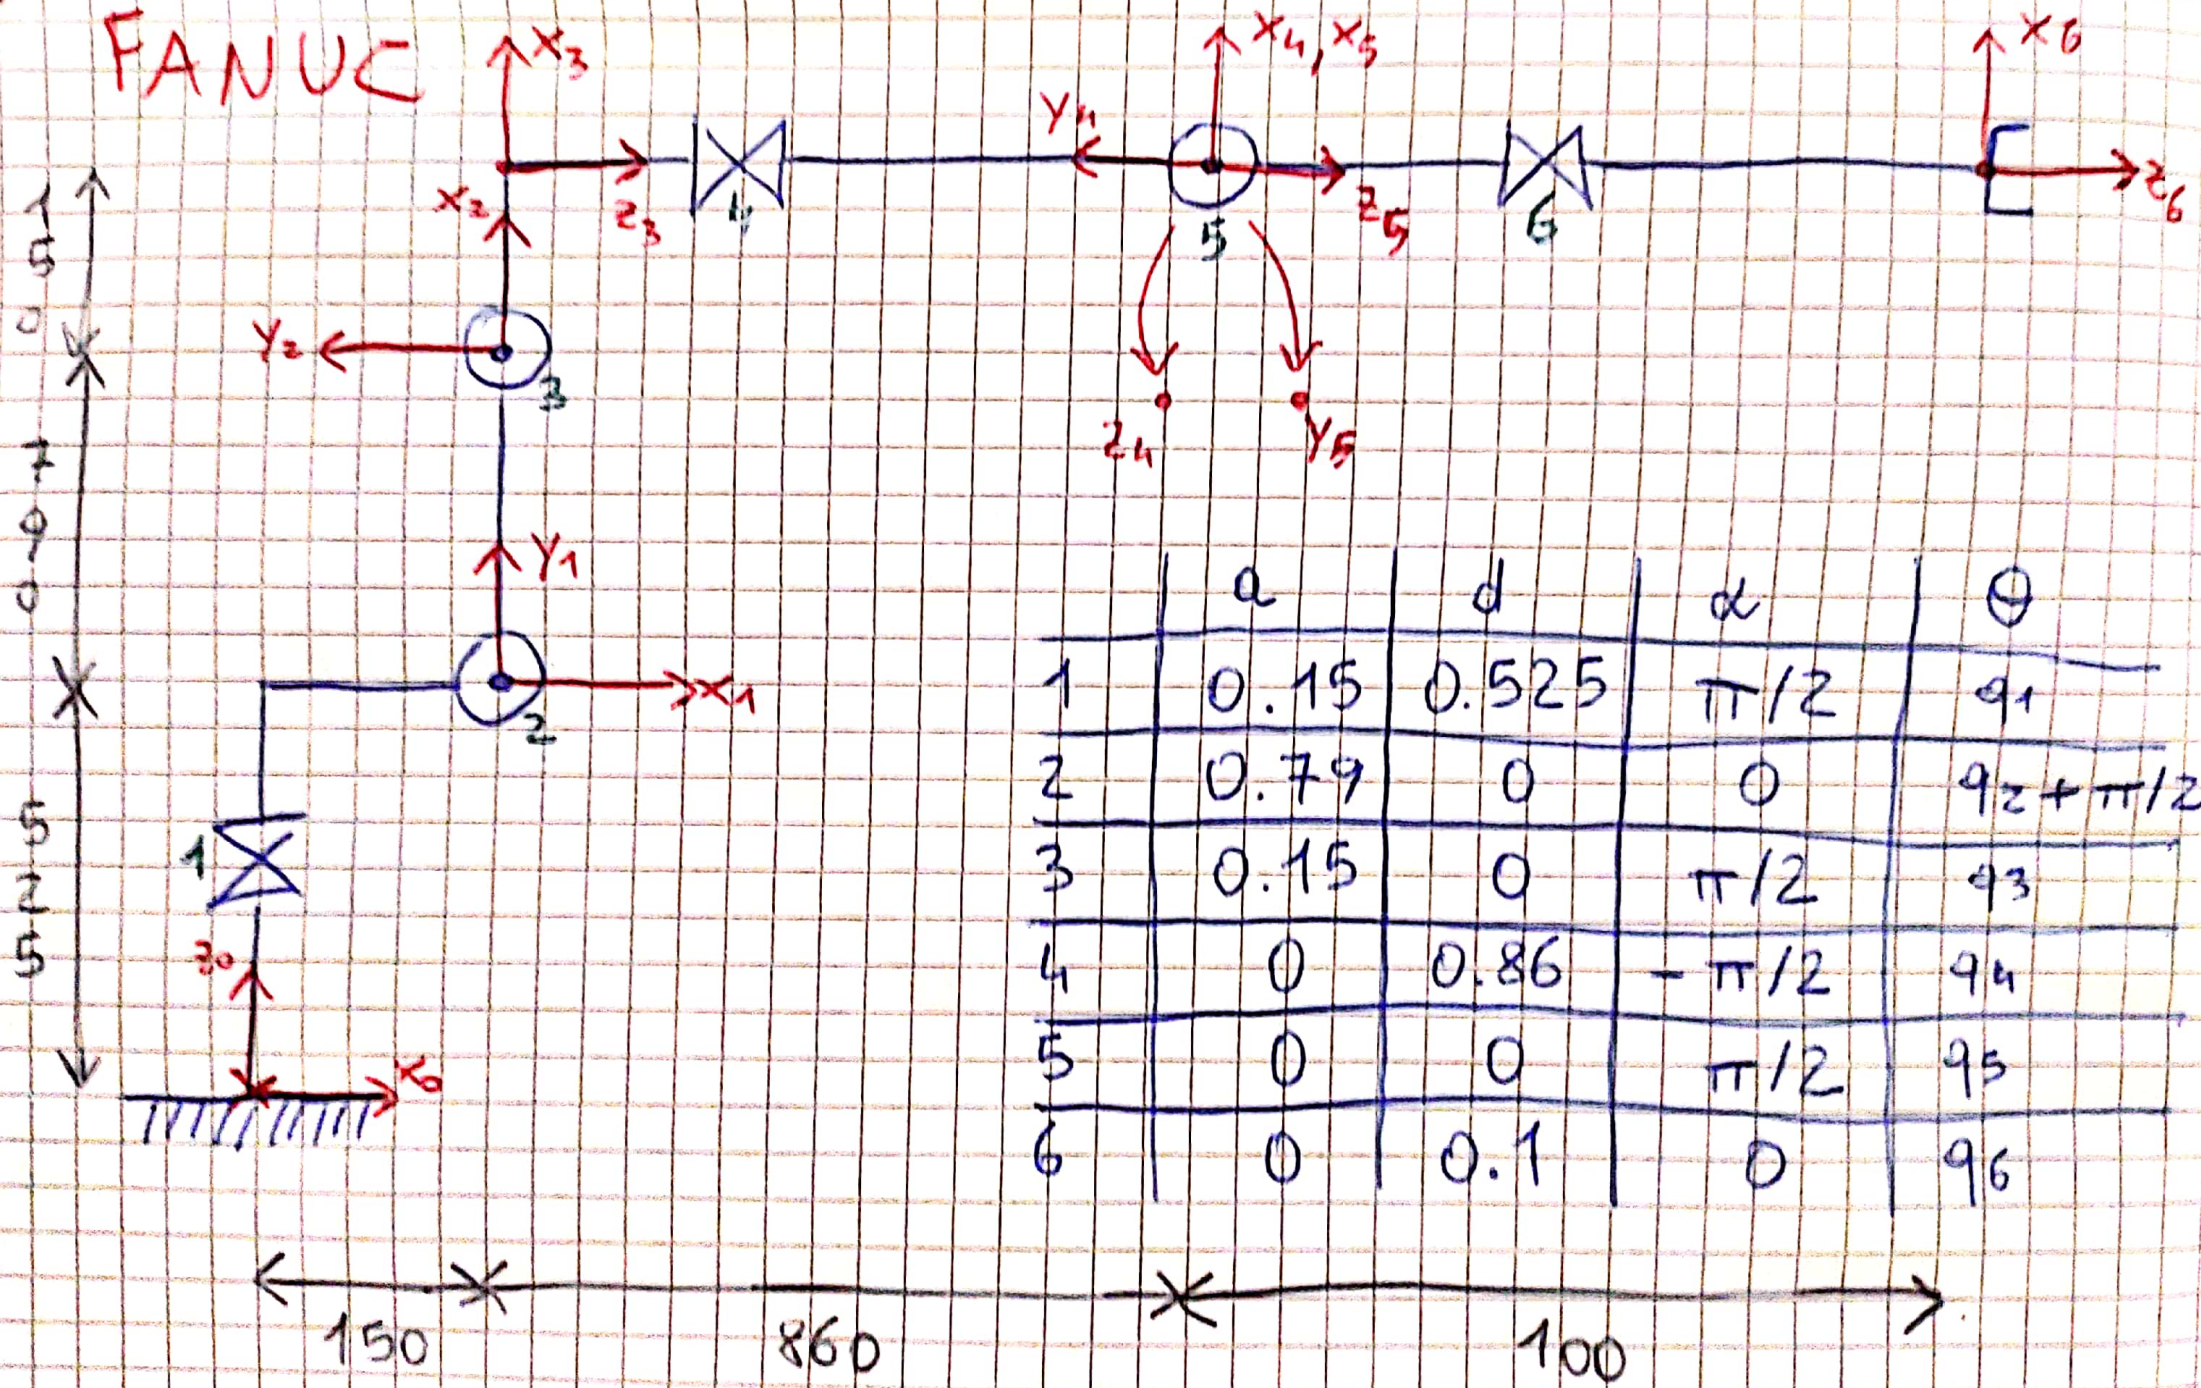 FANUC
X3
X4, X5
X6
Y4
1
5
0
X2
Z3
4
5
Z5
6
Z6
Y2
3
Z4
Y5
7
9
0
Y1
X1
2
a d α θ
1 0.15 0.525 π/2 q1
2 0.79 0 0 q2 + π/2
3 0.15 0 π/2 q3
4 0 0.86 - π/2 q4
5 0 0 π/2 q5
6 0 0.1 0 q6
5
2
5
1
z0
X0
150
860
100